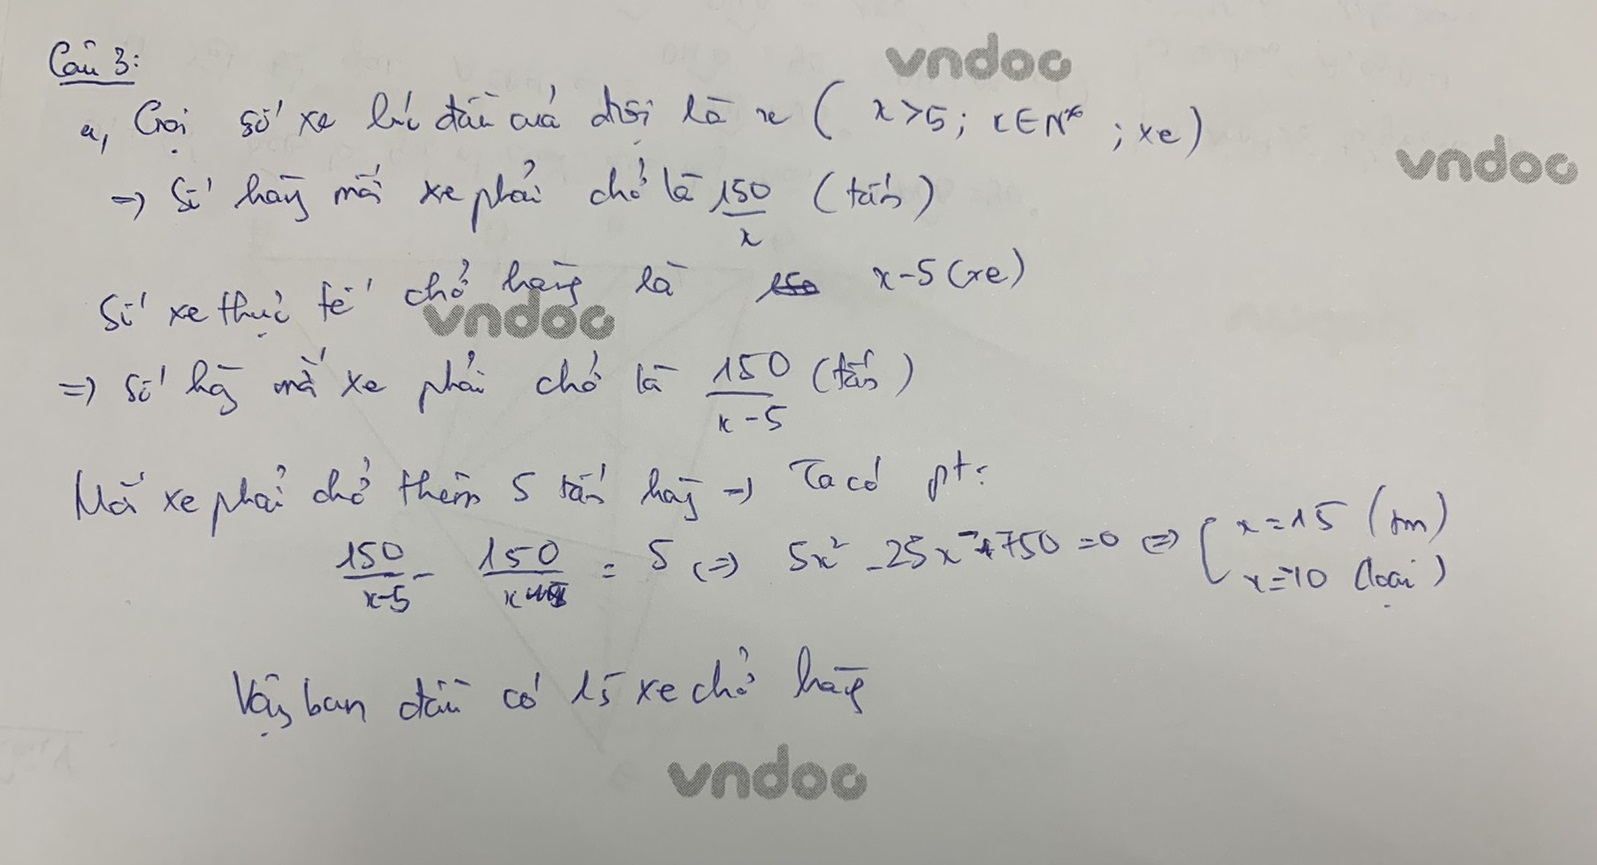 vndoc
Câu 3:
a, Gọi số xe lúc đầu của đội là x ( x>5; x∈N* ; xe)
vndoc
=> Số hàng mỗi xe phải chở là 150/x (tấn)
Số xe thực tế chở hàng là x-5 (xe)
vndoc
=> số hàng mỗi xe phải chở là 150/(x-5) (tấn)
Mỗi xe phải chở thêm 5 tấn hàng => Ta có pt:
150/(x-5) - 150/x = 5 <=> 5x² - 25x - 750 = 0 <=> [ x=15 (tm)
x=-10 (loại)
Vậy ban đầu có 15 xe chở hàng
vndoc